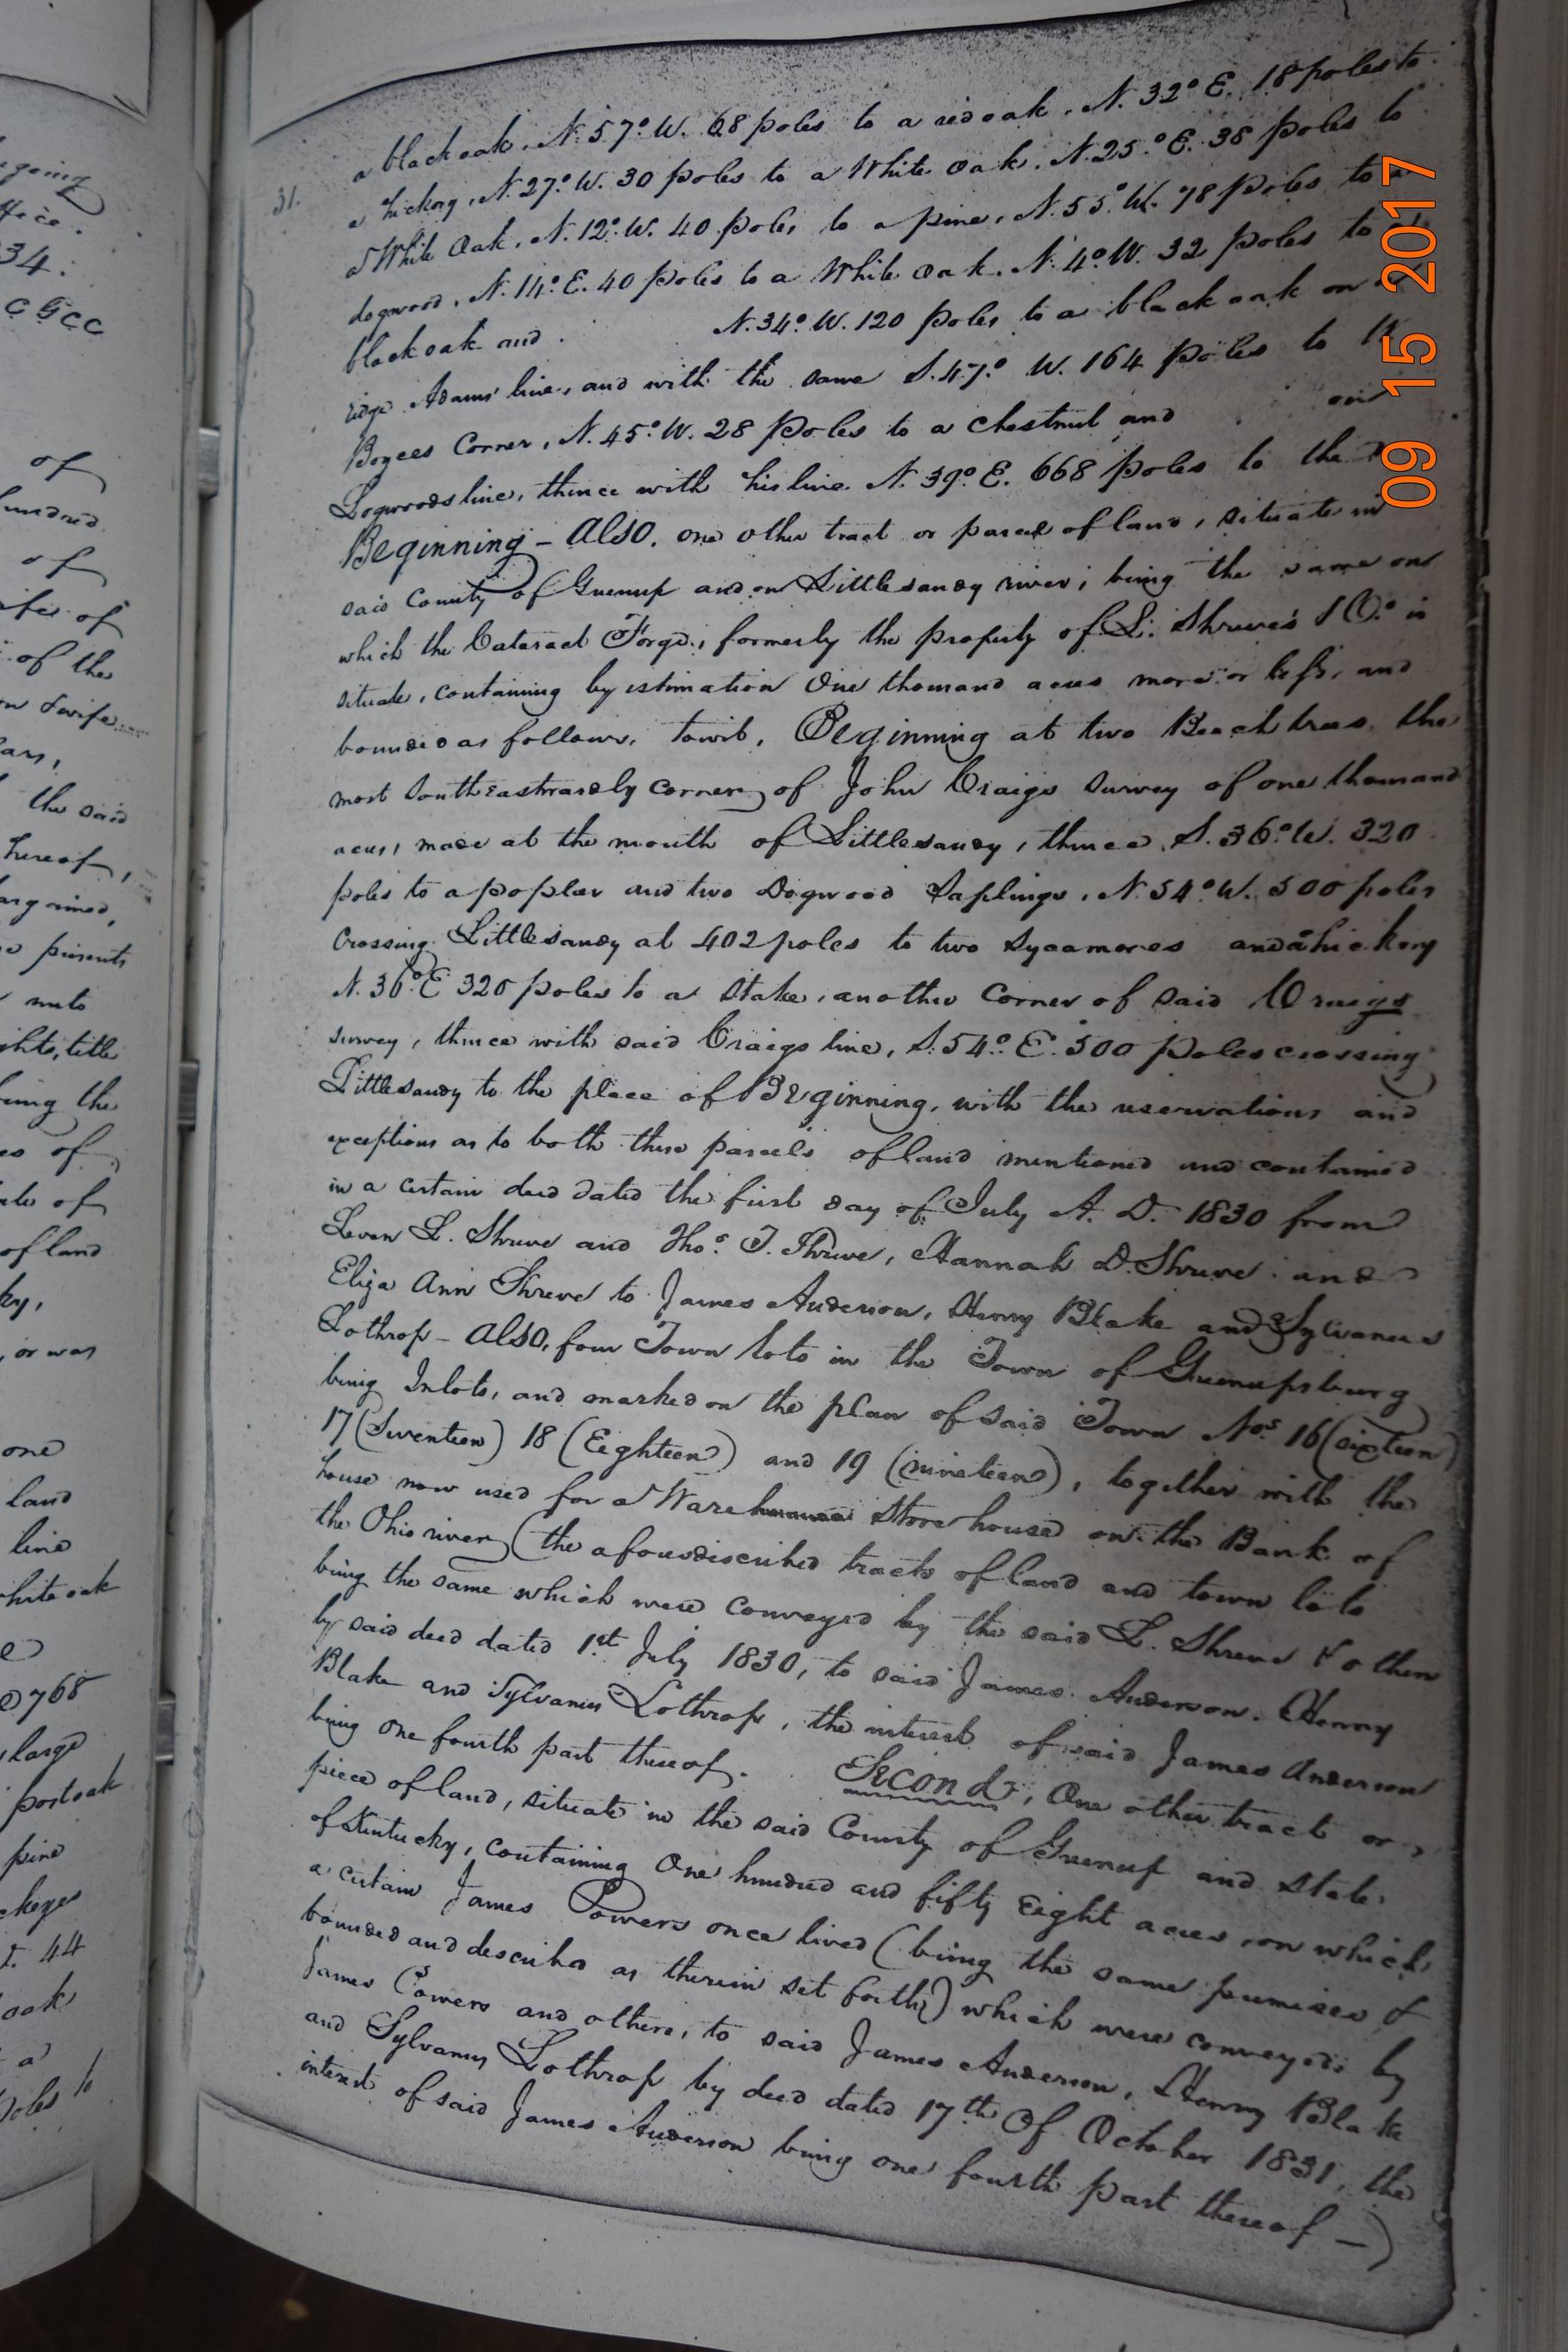 31.
a black oak, N. 57° W. 68 poles to a red oak, N. 32° E. 18 poles to
a hickory, N. 27° W. 30 poles to a White Oak, N. 25° E. 38 poles to
a White Oak, N. 12° W. 40 poles to a pine, N. 55° W. 78 poles to a
dogwood, N. 14° E. 40 poles to a White Oak, N. 4° W. 32 poles to
black oak and N. 34° W. 120 poles to a black oak on
Adams' line, and with the same S. 47° W. 164 poles to
Boyees Corner, N. 45° W. 28 poles to a Chestnut and on
Logwoods line, thence with his line N. 39° E. 668 poles to the
Beginning – Also, one other tract or parcel of land, situate in
said County of Greenup and on Littlesandy river, being the same on
which the Cataract Forge, formerly the property of L. Shreve's & Co. is
situate, containing by estimation One thousand acres more or less, and
bounded as follows, towit, Beginning at two Beach trees the
most Southeastwardly corner of John Craigs survey of one thousand
acres, made at the mouth of Littlesandy, thence S. 36° W. 320
poles to a poplar and two Dogwood Saplings, N. 54° W. 500 poles
Crossing Littlesandy at 402 poles to two Sycamores and a hickory
N. 36° E 320 poles to a Stake, another Corner of said Craigs
survey, thence with said Craigs line, S. 54° E. 500 poles crossing
Littlesandy to the place of Beginning, with the reservations and
exceptions as to both these parcels of land mentioned and contained
in a certain deed dated the first day of July A. D. 1830 from
Leven L. Shreve and Thos. T. Shreve, Hannah D. Shreve and
Eliza Ann Shreve to James Anderson, Henry Blake and Sylvanus
Lothrop – Also, four Town lots in the Town of Greenupsburg
being Inlots, and marked on the plan of said Town Nos. 16 (sixteen)
17 (Seventeen) 18 (Eighteen) and 19 (nineteen), together with the
house now used for a Ware Store house on the Bank of
the Ohio river (the aforedescribed tracts of land and town lots
being the same which were conveyed by the said L. Shreve & others
by said deed dated 1st July 1830, to said James Anderson, Henry
Blake and Sylvanus Lothrop, the interest of said James Anderson
being one fourth part thereof. Second, One other tract or
piece of land, situate in the said County of Greenup and State
of Kentucky, containing One hundred and fifty Eight acres, on which
a certain James Powers once lived (being the same premises &
bounded and described as therein set forth) which were conveyed by
James Powers and others, to said James Anderson, Henry Blake
and Sylvanus Lothrop by deed dated 17th of October 1831, the
interest of said James Anderson being one fourth part thereof –)
09 15 2017
34.
of
hundred
of
of
of the
wife
the said
hereof,
presents
title
the
of
of
of land
or was
one
land
line
white oak
768
large
post oak
pine
44
oak
a
poles